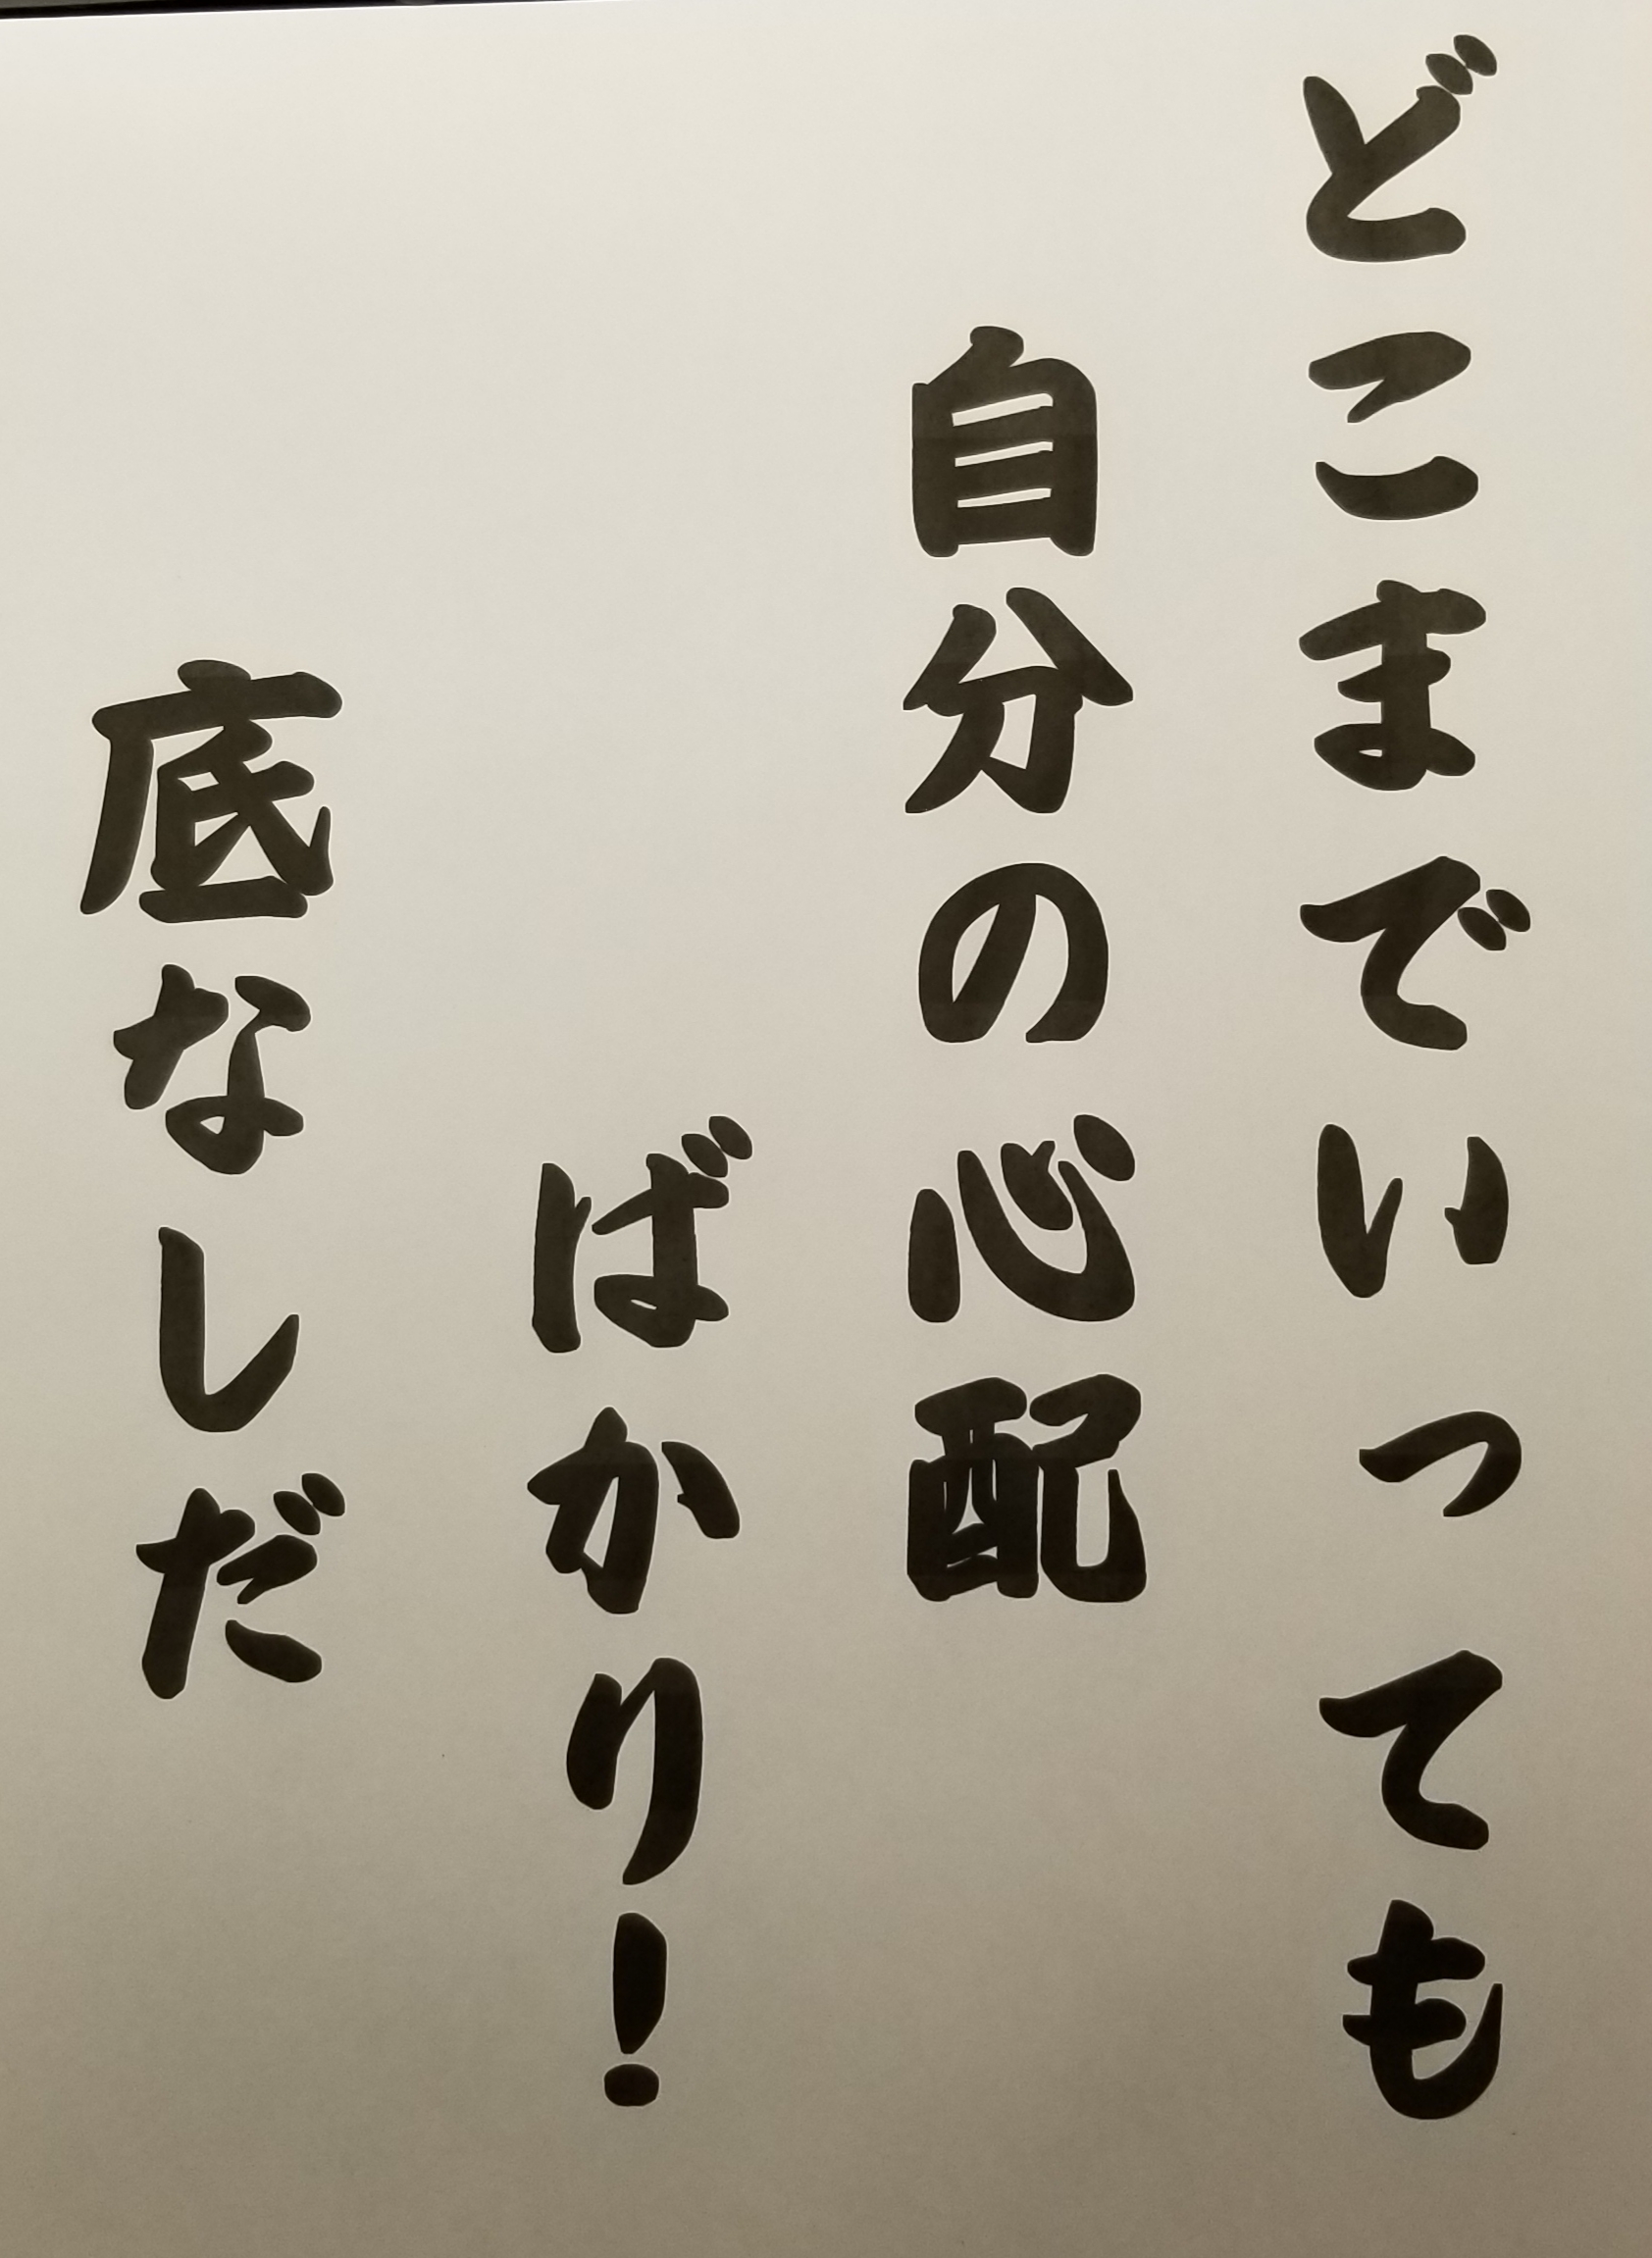 どこまでいっても
自分の心配
ばかり！
底なしだ